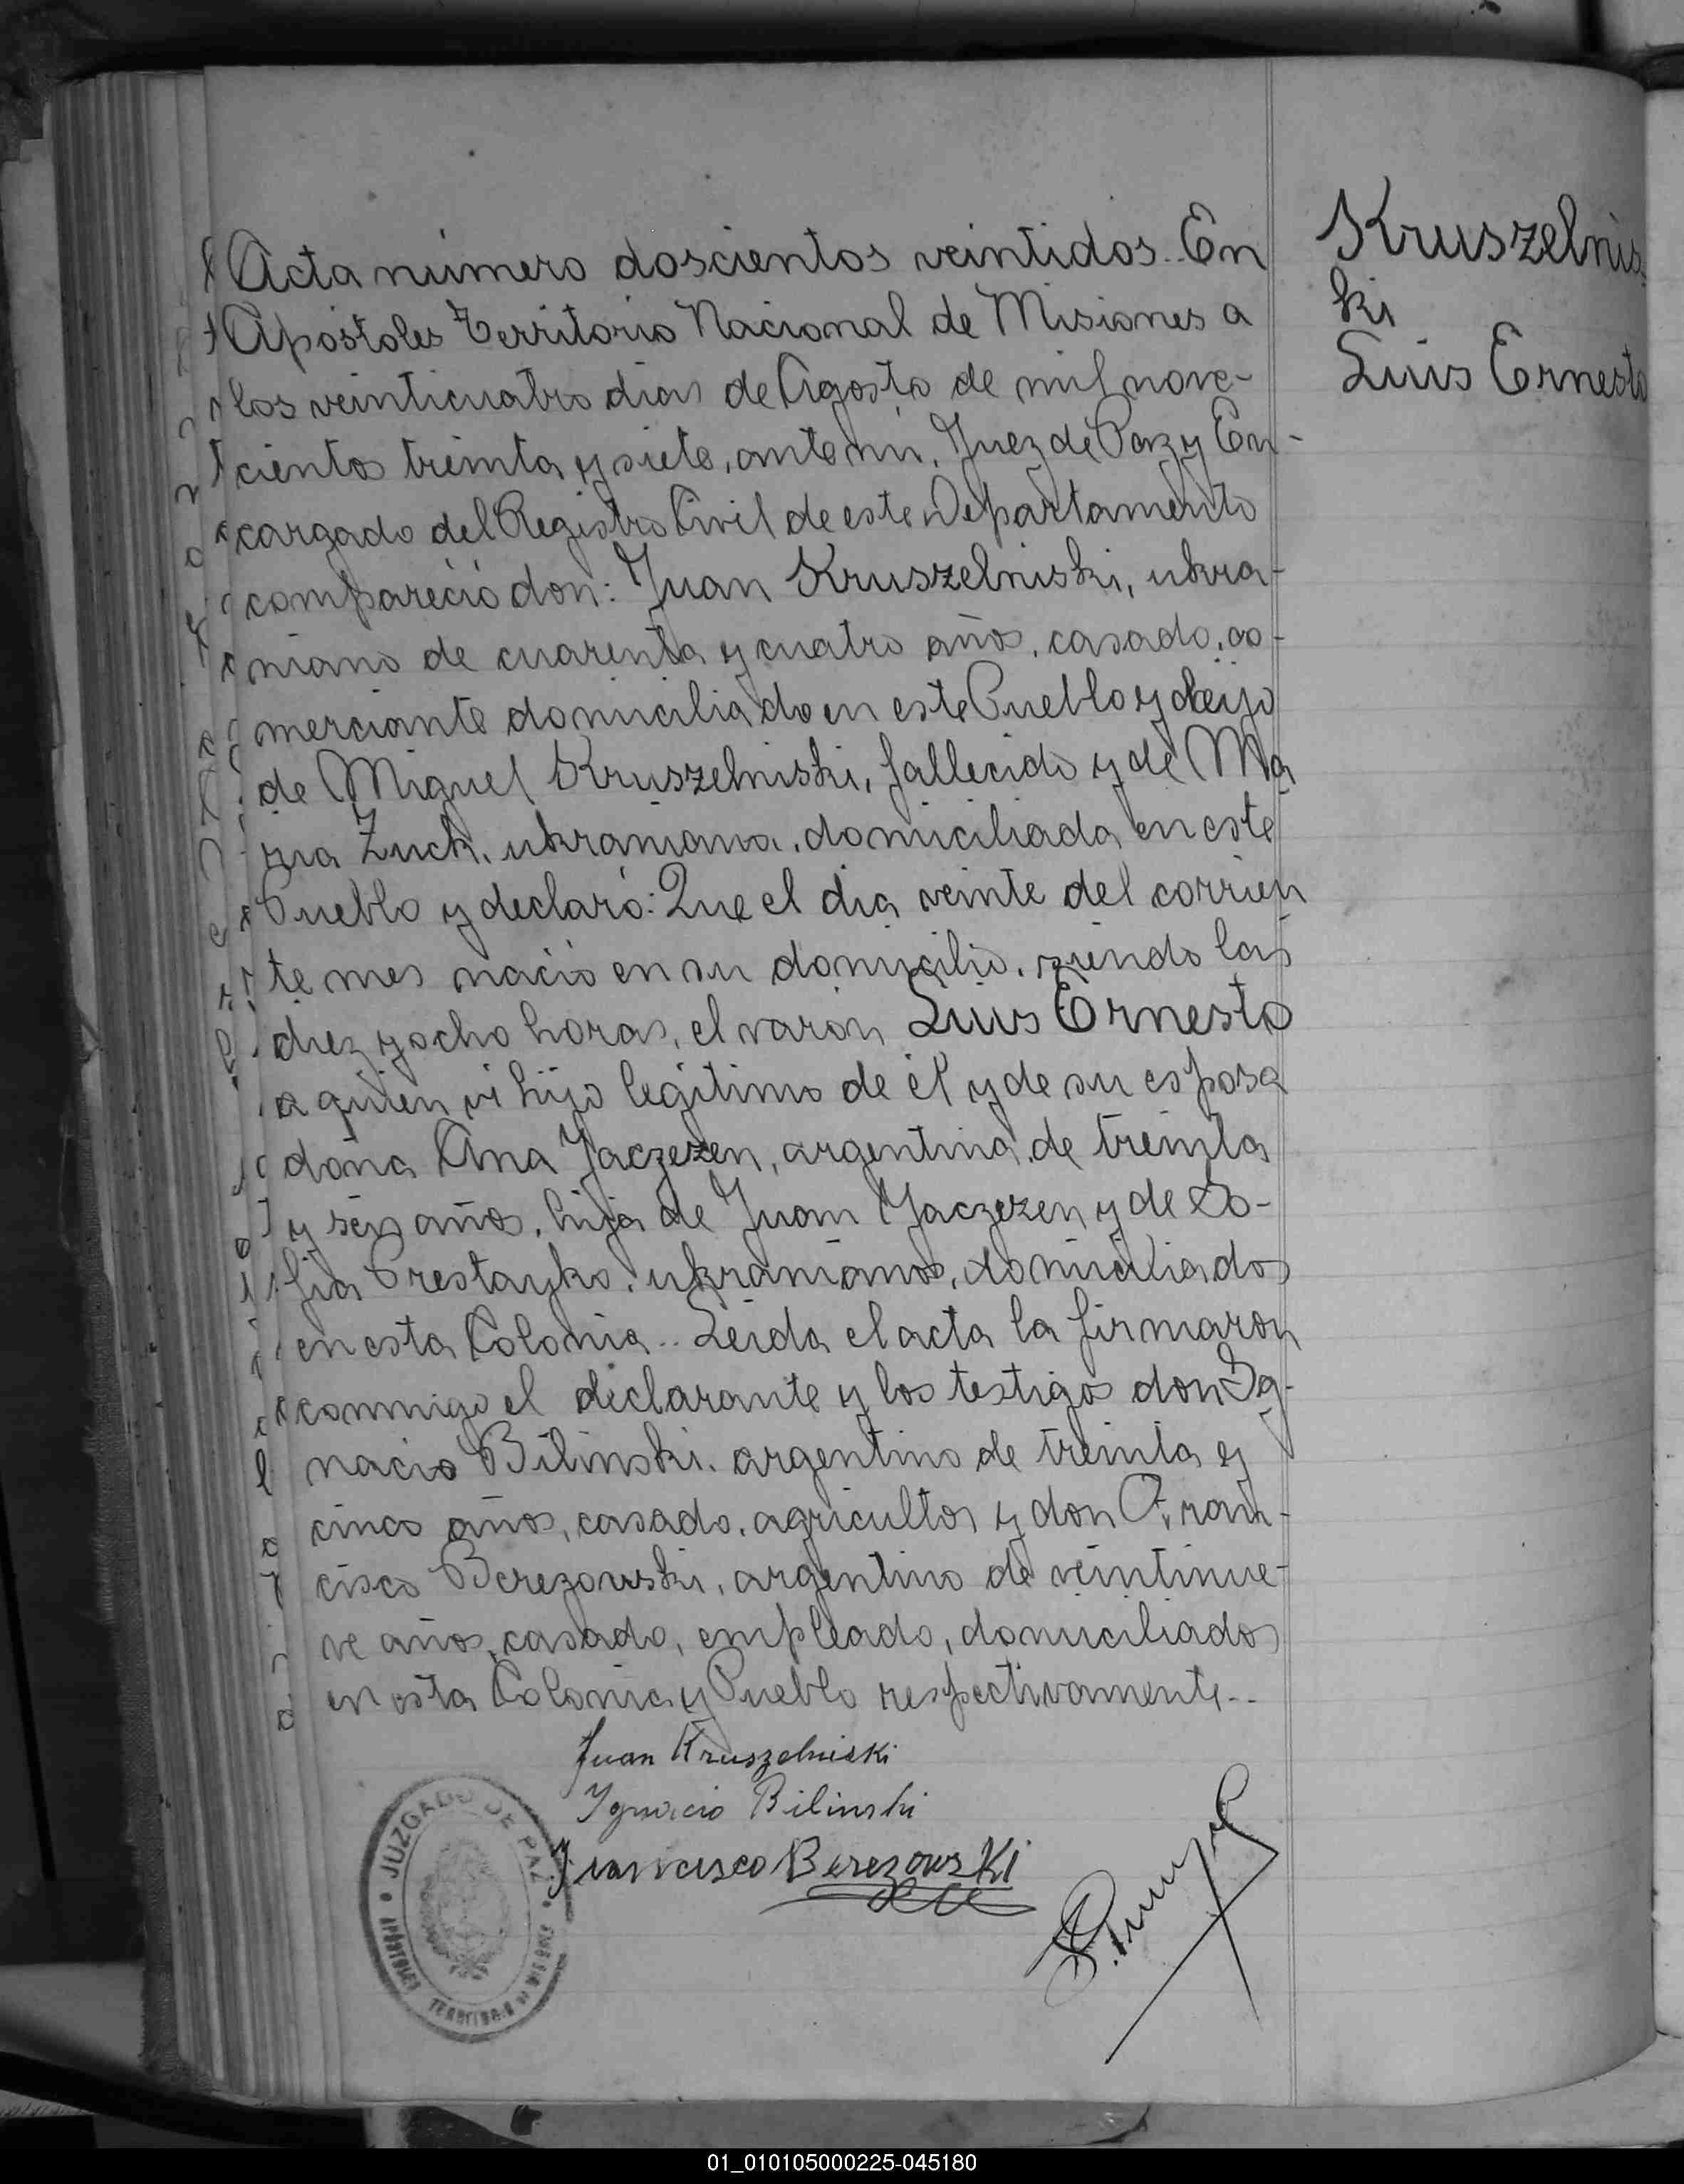 Acta número doscientos veintidos.. En
Apóstoles Territorio Nacional de Misiones a
los veinticuatro dias de Agosto de mil nove-
cientos treinta y siete, ante mí, Juez de Paz y En-
cargado del Registro Civil de este Departamento
compareció don: Juan Kruszelniski, ukra-
niano de cuarenta y cuatro años, casado, co-
merciante domiciliado en este Pueblo y
de Miguel Kruszelniski, fallecido y de Ma
ria Zuck, ukraniana, domiciliada en este
Pueblo y declaró: Que el dia veinte del corrien
te mes nació en su domicilio, siendo las
diez y ocho horas, el varón Luis Ernesto
a quien ví hijo legítimo de él y de su esposa
doña Ana Jaczezen, argentina, de treinta
y seis años, hija de Juan Yaczezen y de So-
fia Prestayko, ukranianos, domiciliados
en esta Colonia.. Leida el acta la firmaron
conmigo el declarante y los testigos don Ig-
nacio Bilinski, argentino de treinta y
cinco años, casado, agricultor y don Fran-
cisco Berezowski, argentino de veintinue-
ve años, casado, empleado, domiciliados
en esta Colonia y Pueblo respectivamente..
Kruszelnis-
ki
Luis Ernesto
Juan Kruszelniski
Ignacio Bilinski
Francisco Berezowski
JUZGADO DE PAZ
APÓSTOLES
01_010105000225-045180